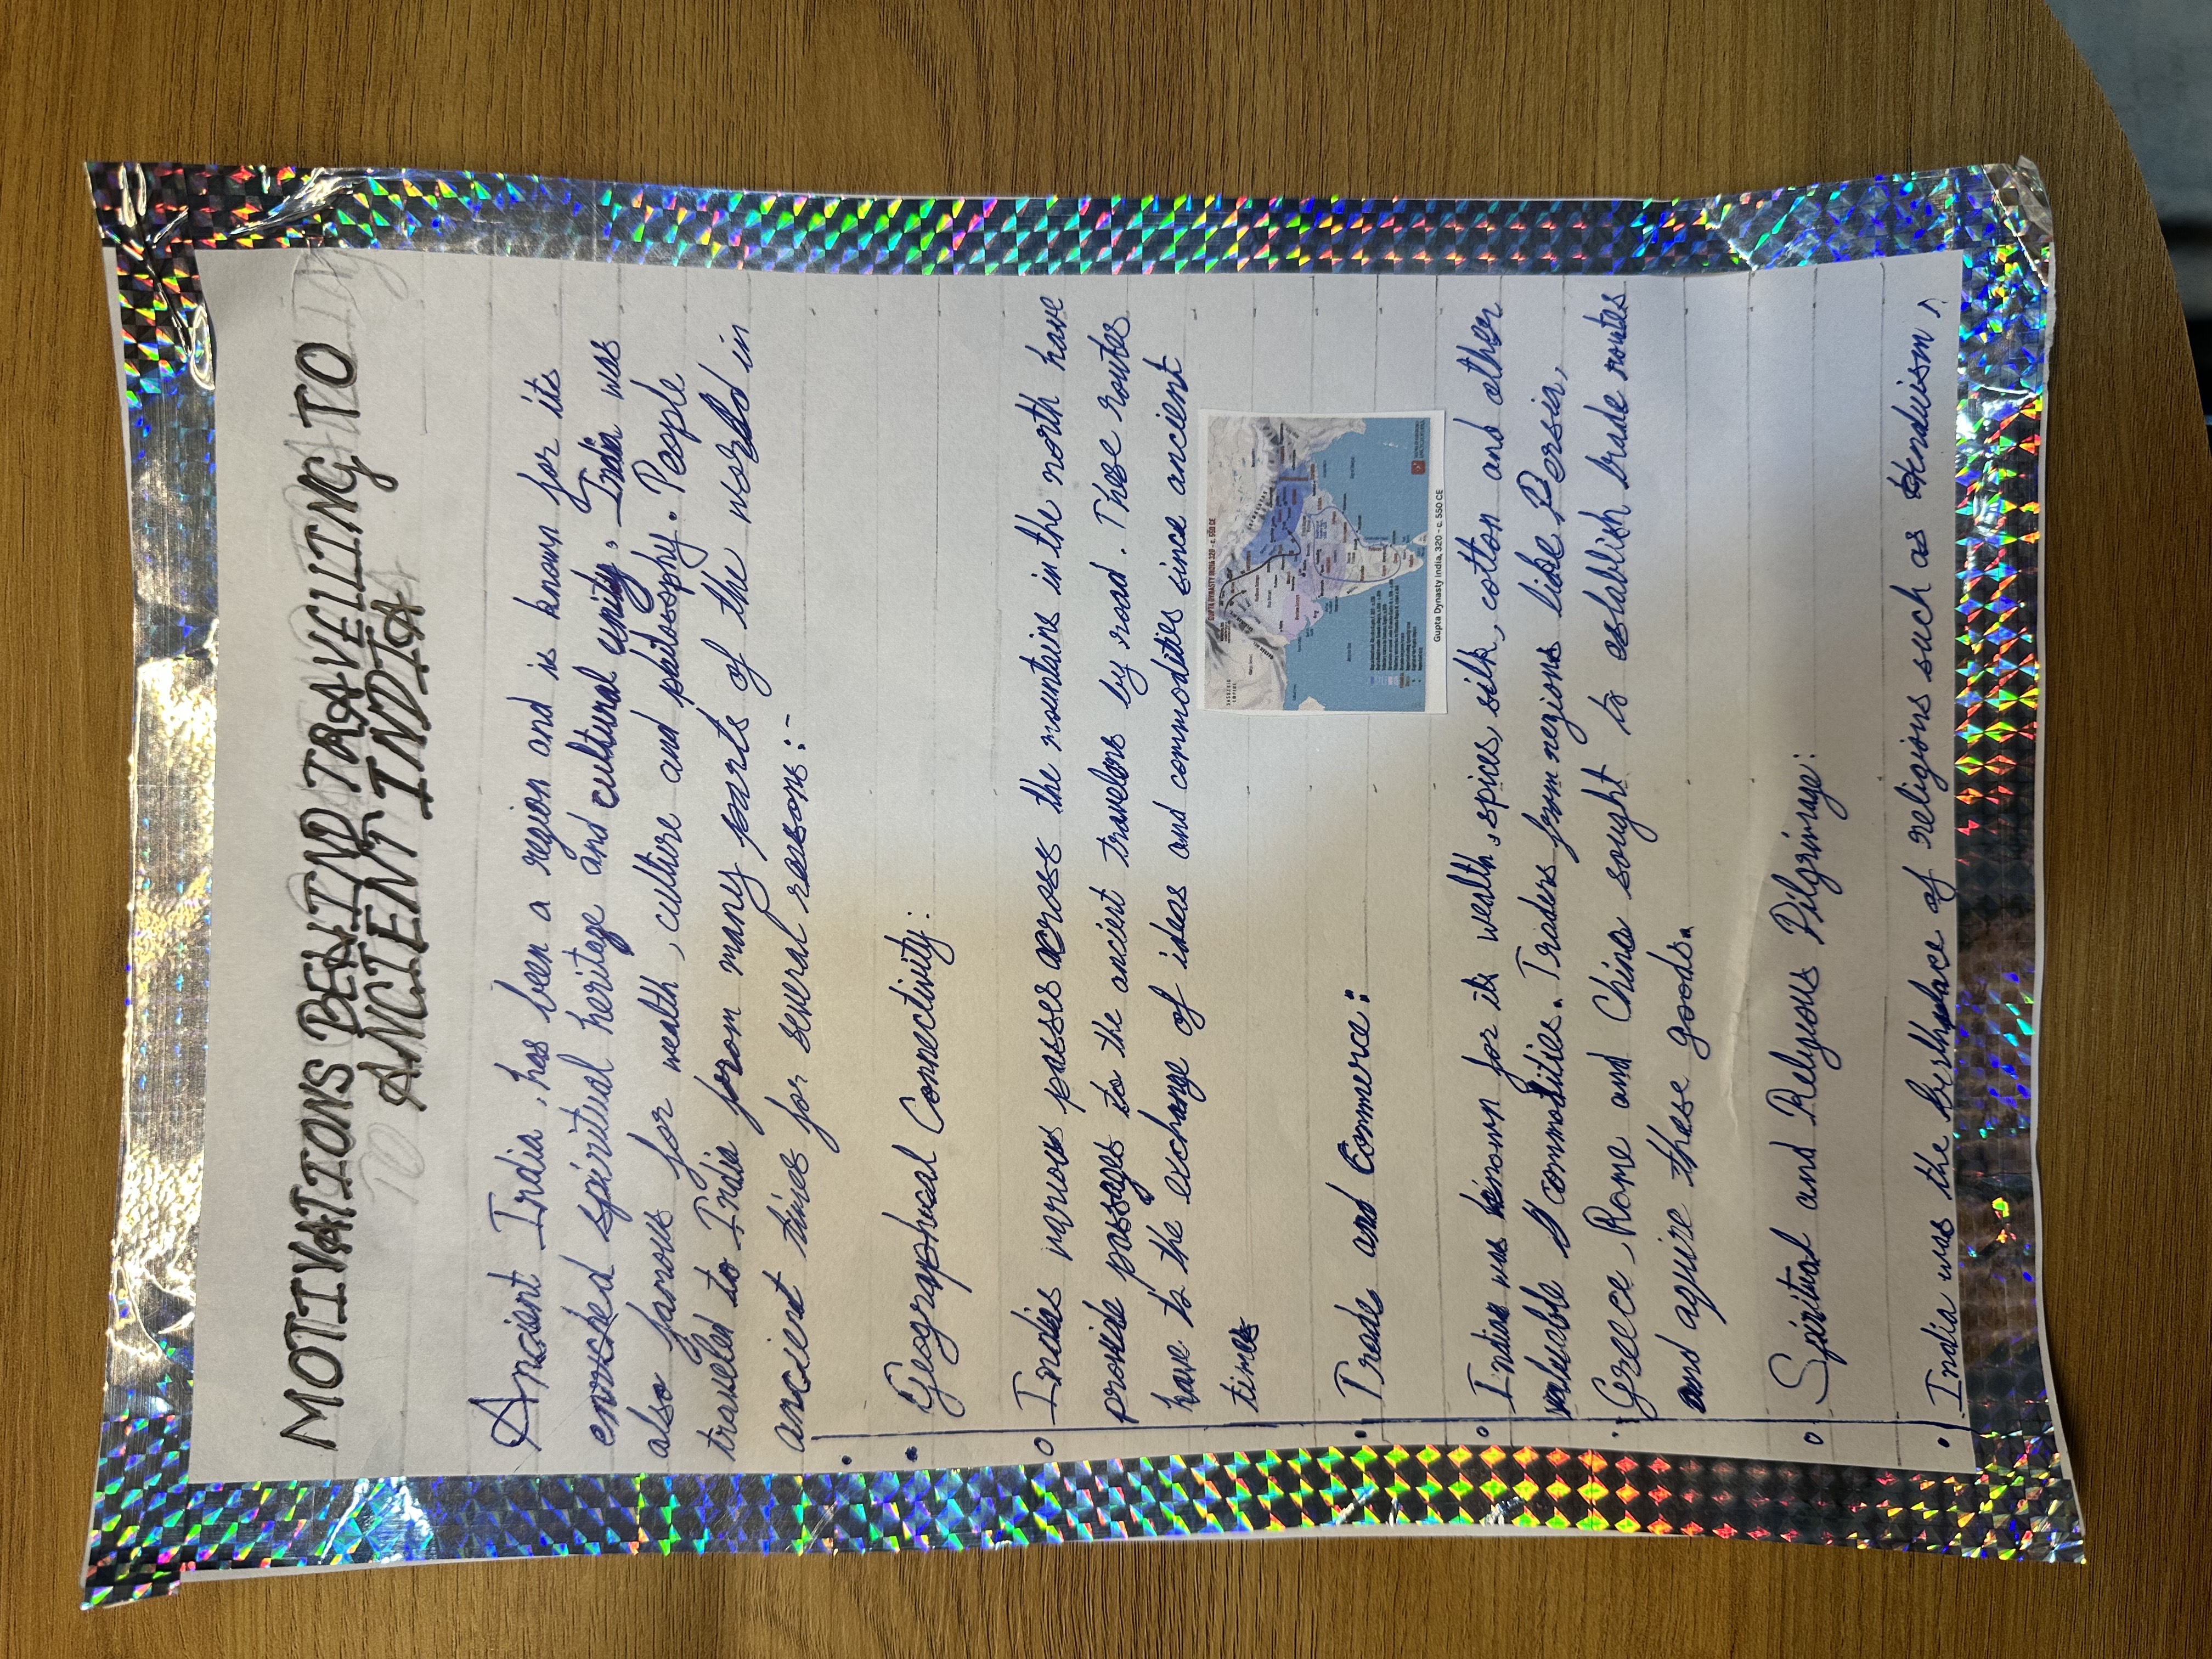 MOTIVATIONS BEHIND TRAVELLING TO
ANCIENT INDIA
Ancient India, has been a region and is known for its
enriched spiritual heritage and cultural unity. India was
also famous for wealth, culture and philosophy. People
traveled to India from many parts of the world in
ancient times for several reasons:-
Geographical Connectivity:
Indias various passes across the mountains in the north have
provide passages to the ancient travelers by road. These routes
have to the exchange of ideas and commodities since ancient
times
GUPTA DYNASTY INDIA 320 - c. 550 CE
Gupta Dynasty India, 320 - c. 550 CE
Trade and Commerce:
India was known for its wealth, spices, silk, cotton and other
valuable commodities. Traders from regions like Persia,
Greece, Rome and China sought to establish trade routes
and aquire these goods.
Spiritual and Religious Pilgrimage:
India was the birthplace of religions such as Hinduism,